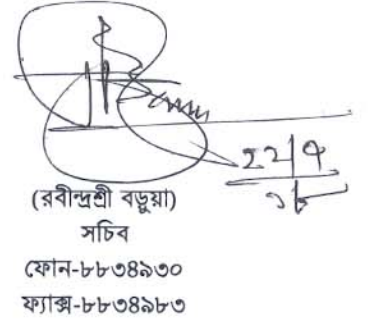 ২২/৭
১৮
(রবীন্দ্রশ্রী বড়ুয়া)
সচিব
ফোন-৮৮৩৪৯৩০
ফ্যাক্স-৮৮৩৪৯৮৩